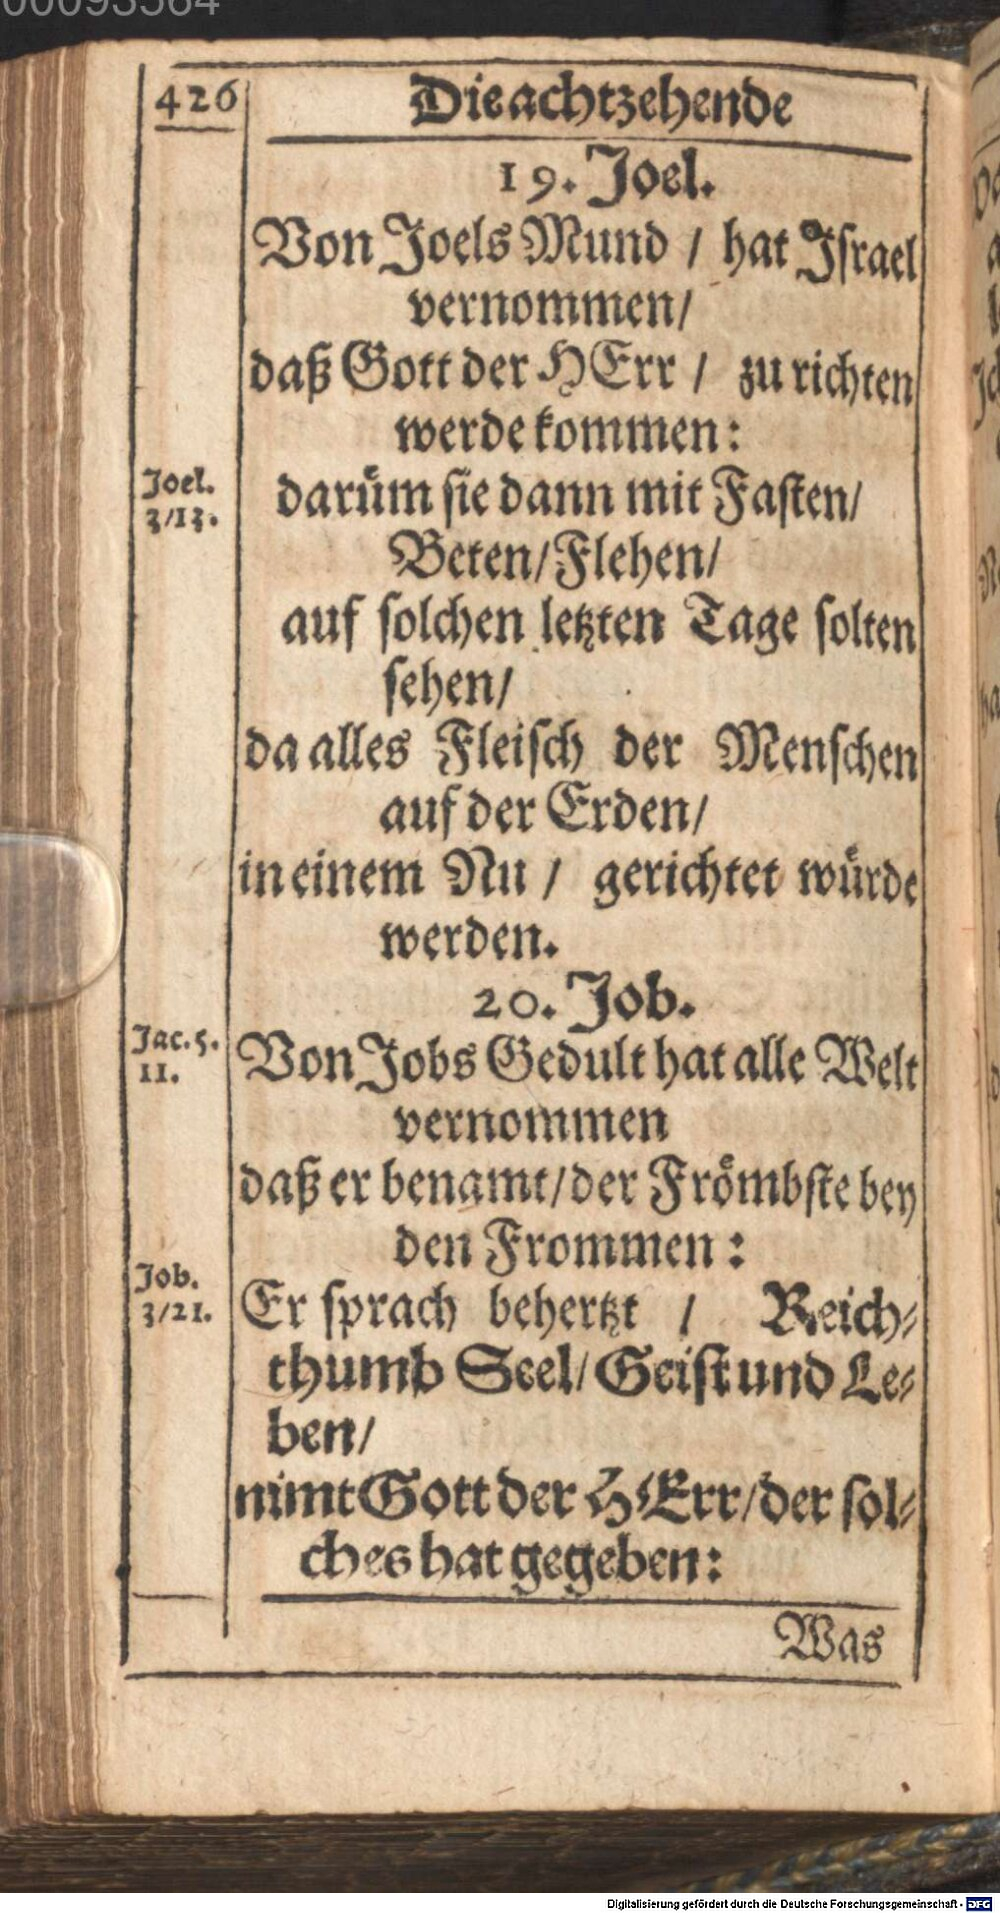 00093564
426
Die achtzehende
19. Joel.
Von Joels Mund / hat Israel
vernommen/
daß Gott der HErr / zu richten
werde kommen:
Joel.
3/13.
darüm sie dann mit Fasten/
Beten/Flehen/
auf solchen letzten Tage solten
sehen/
da alles Fleisch der Menschen
auf der Erden/
in einem Nu / gerichtet würde
werden.
20. Job.
Jac. 5.
11.
Von Jobs Gedult hat alle Welt
vernommen
daß er benamt/der Frömbste bey
den Frommen:
Job.
3/21.
Er sprach behertzt / Reich-
thumb Seel/Geist und Le-
ben/
nimt Gott der HErr/der sol-
ches hat gegeben:
Was
Digitalisierung gefördert durch die Deutsche Forschungsgemeinschaft - DFG